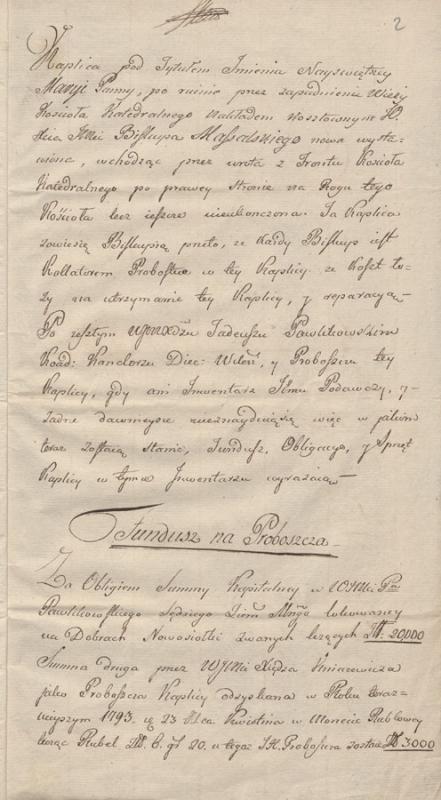 2
Kaplica pod Tytułem Imienia Nayświętszey
Maryi Panny, po ruinie przez zapadnienie Wieży
Kościoła Katedralnego nakładem kosztownym
Bisskupa Massalskiego nowa wysta-
wiona, wchodząc przez wrota z Frontu Kościoła
Katedralnego po prawey stronie na Rogu tego
Kościoła lecz ieszcze nieukonczona. Ta Kaplica
zowie się Biskupią przeto, że każdy Biskup iest
Kollatorem Probostwa w tey Kaplicy że Koszt ło-
ży na utrzymanie tey Kaplicy, y reparacyą
Po zeszłym Tadeuszu Pawlikowskim
Kanclerzu Diec: Wileń, y Proboszczu tey
Kaplicy, gdy ani Inwentarz Jemu Podawczy, y
żadne dawnieysze nieznayduią się więc w jakim
teraz zostaią stanie, Fundusz, Obligacye, y Sprzęt
Kaplicy w tym Inwentarzu wyrażaią
Fundusz na Proboszcza
Za Obligiem Summy Kapitalney u WJMci Pa
Pawlikowskiego Sędziego Ziem lokowaney
na Dobrach Nowosiołki zwanych leżących 20,000
Summa druga przez WJMci Xiędza Kniaziewicza
jako Proboszcza Kaplicy odzyskana w Roku teraz-
nieyszym 1793. 23 Kwietnia w Monecie Rublowey
licząc Rubel 6. gr 20. Proboszcza zostaie 3000